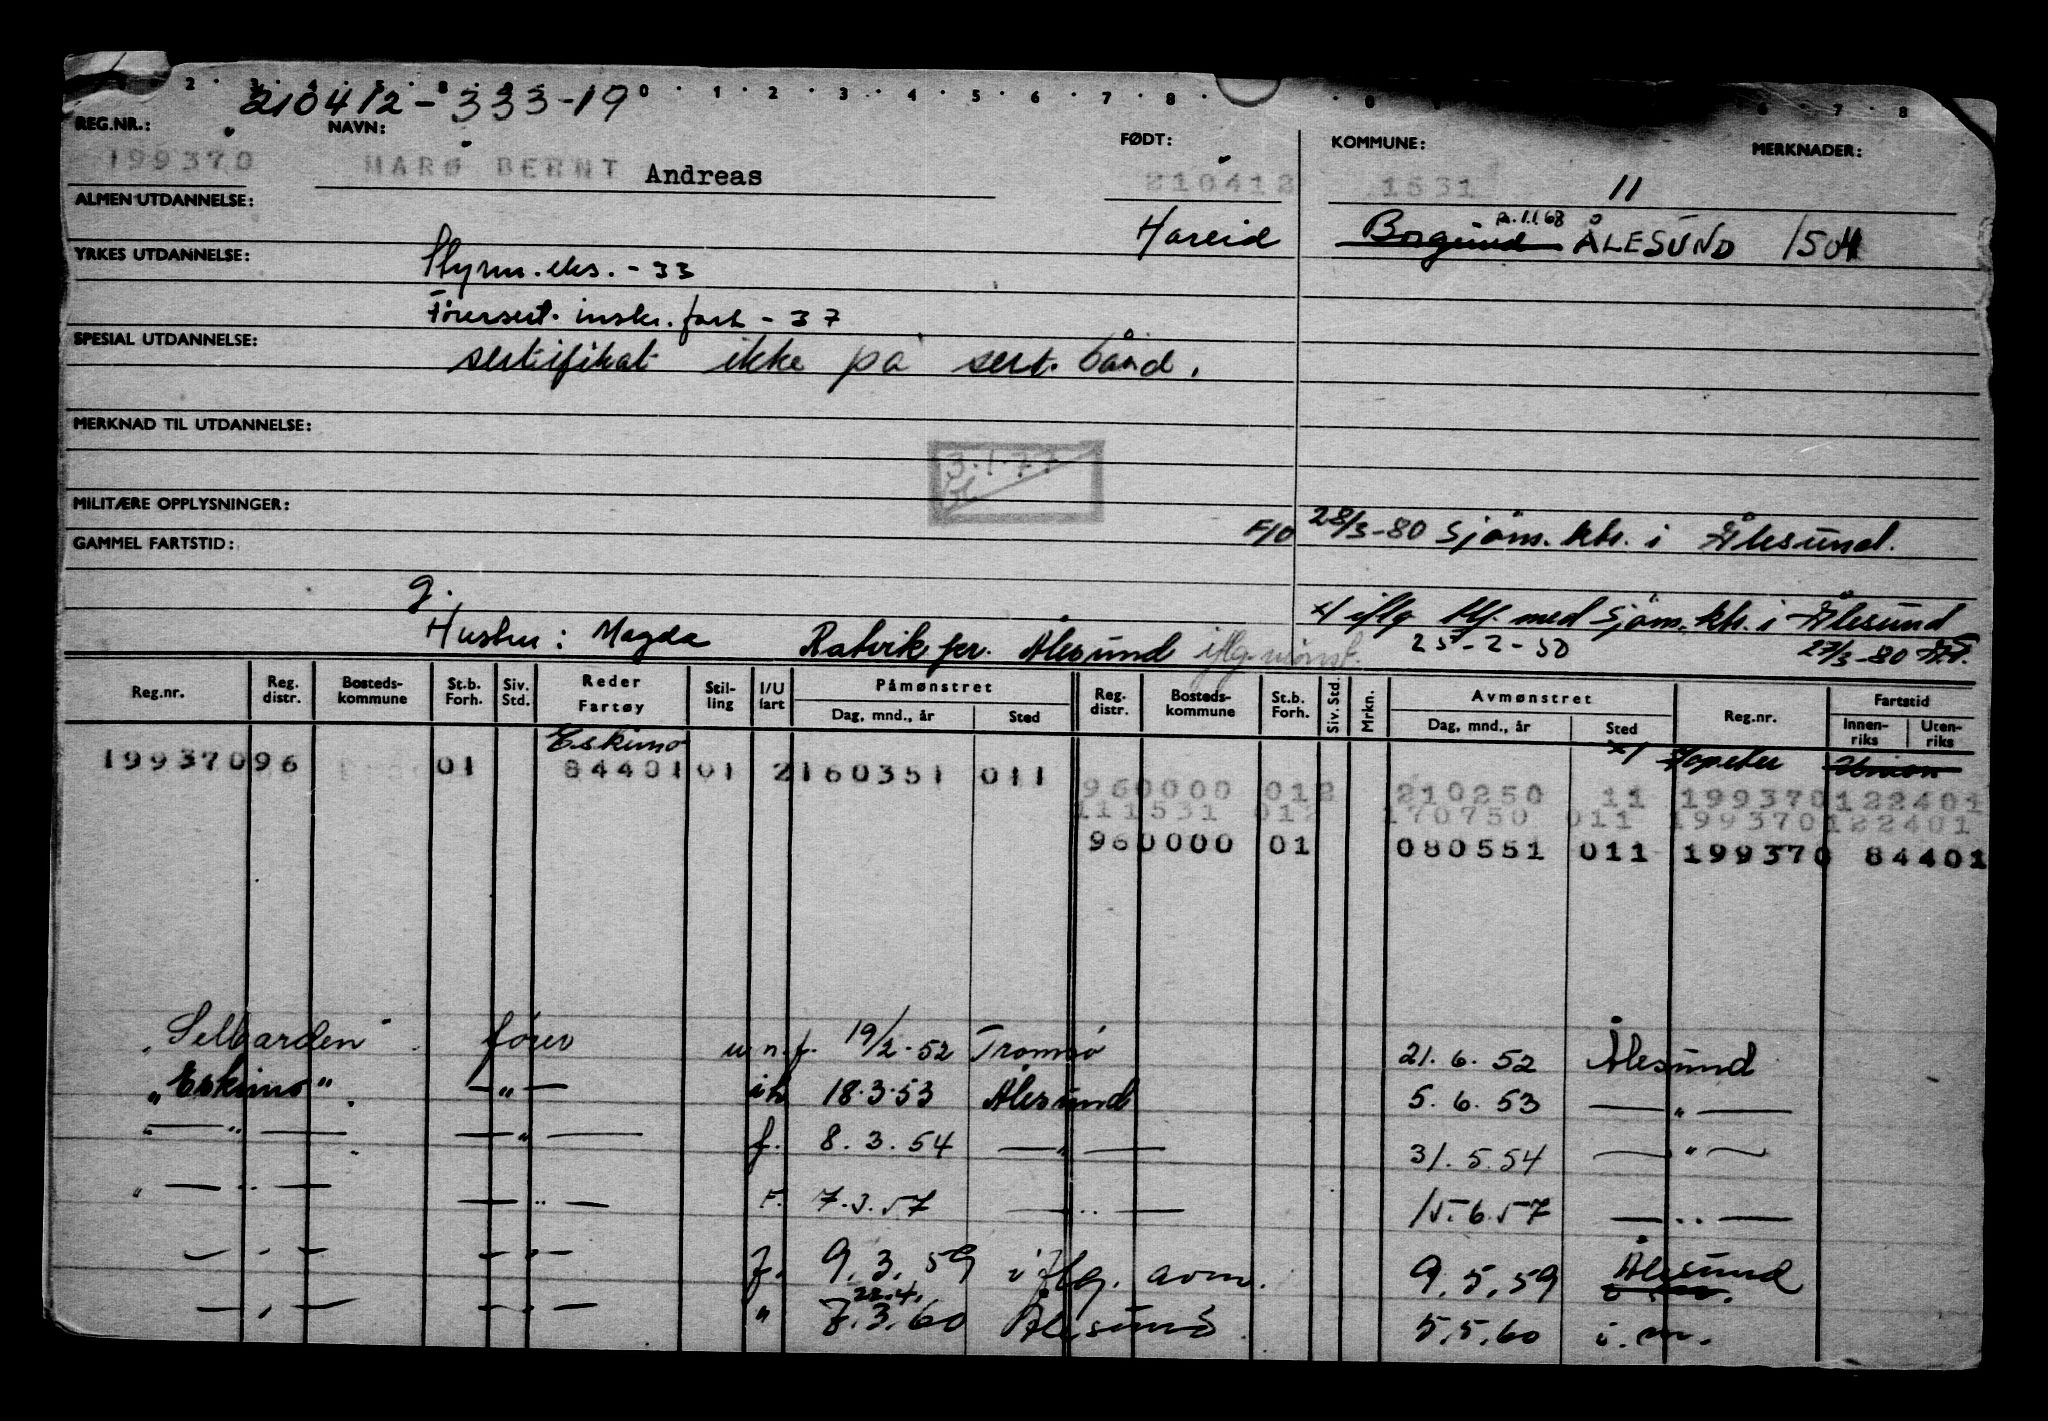 2 . 3 . 4 . 5 . 8 . 9 . 0 . 1 . 2 . 3 . 4 . 5 . 6 . 7 . 8 . . 0 6 . 7 . 8
210412-333-19
REG.NR.: NAVN: FØDT: KOMMUNE: MERKNADER:
199370 MARØ BERNT Andreas 210412 1531 11
ALMEN UTDANNELSE: Hareid Borgund 1.1.68 ÅLESUND 1504
YRKES UTDANNELSE: Styrm.eks. - 33
Førersert. inskr. fart - 37
SPESIAL UTDANNELSE: sertifikat ikke på sert. bånd.
MERKNAD TIL UTDANNELSE:
3.1.77
MILITÆRE OPPLYSNINGER:
F/O 28/3-80 Sjöm.ktr. i Ålesund.
GAMMEL FARTSTID:
g. x/ iflg tlf. med Sjöm.ktr. i Ålesund
Hustru: Magda Ratvik pr. Ålesund iflg. mönst. 25-2-50 27/3-80
Reg.nr. Reg. distr. Bosteds- kommune St.b. Forh. Siv. Std. Reder Fartøy Stil- ling I/U fart Påmønstret Dag, mnd., år Sted Reg. distr. Bosteds- kommune St.b. Forh. Siv. Std. Mrkn. Avmønstret Dag, mnd., år Sted Reg.nr. Fartstid Innen- riks Uten- riks
Eskimo x/
199370 96 01 84401 01 2 160351 011
960000 012 210250 11 199370 122401
111531 012 170750 011 199370 122401
960000 01 080551 011 199370 84401
Selbarden fører u.n.f. 19/2-52 Tromsö 21.6.52 Ålesund
„Eskimo" — „ — 18.3.53 Ålesund 5.6.53 — „ —
— „ — — „ — f. 8.3.54 — „ — 31.5.54 — „ —
— „ — — „ — F. 7.3.57 — „ — 15.6.57 — „ —
— „ — — „ — f. 9.3.59 iflg. avm. 9.5.59 Ålesund
— „ — — „ — „ 22.4. 7.3.60 Ålesund 5.5.60 i.m.